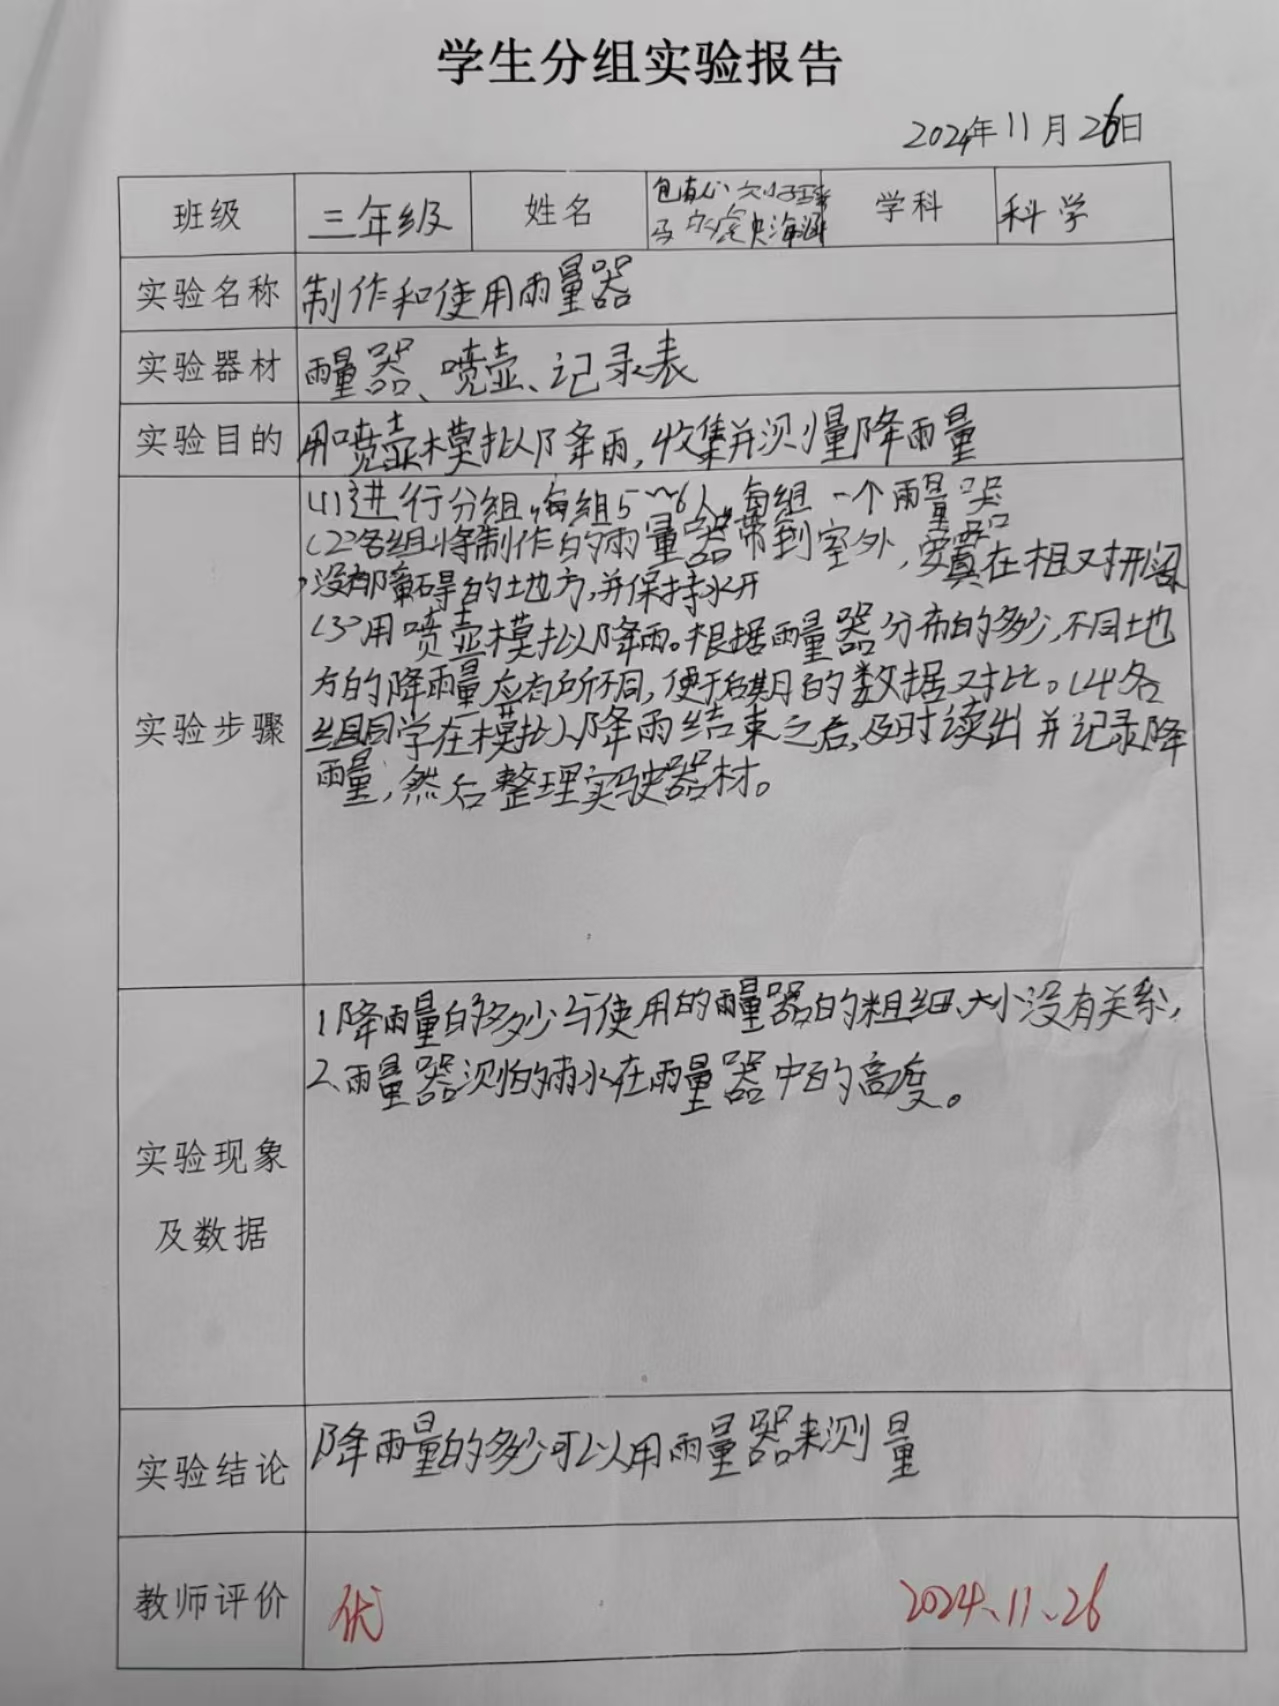 学生分组实验报告
2024年11月26日
班级 三年级 姓名 学科 科学
实验名称 制作和使用雨量器
实验器材 雨量器、喷壶、记录表
实验目的 用喷壶模拟降雨,收集并测量降雨量
实验步骤
(1)进行分组,每组5~6人,每组一个雨量器
(2)各组将制作的雨量器带到室外,安置在相对开阔
,没有障碍的地方,并保持水平
(3)用喷壶模拟降雨。根据雨量器分布的多少,不同地
方的降雨量应有所不同,便于后期的数据对比。(4各
组同学在模拟降雨结束之后,及时读出并记录降
雨量,然后整理实验器材。
实验现象
及数据
1降雨量的多少与使用的雨量器的粗细、大小没有关系,
2、雨量器测的雨水在雨量器中的高度。
实验结论 降雨量的多少可以用雨量器来测量
教师评价 优 2024、11、26